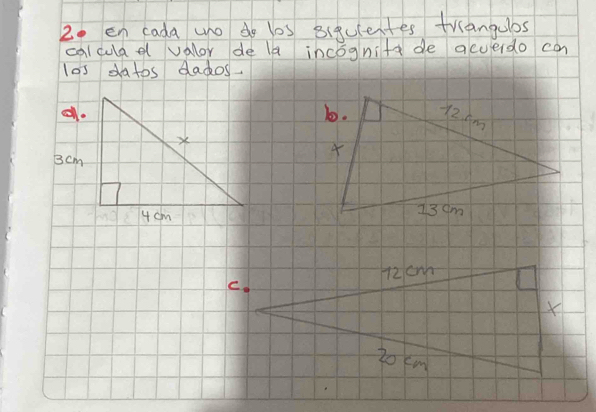 2. en cada uno de los siguientes triangulos
calcula el valor de la incógnita de acuerdo con
los datos dados.
a.
x
3cm
4 cm
b.
12 cm
x
13 cm
c.
12 cm
x
20 cm